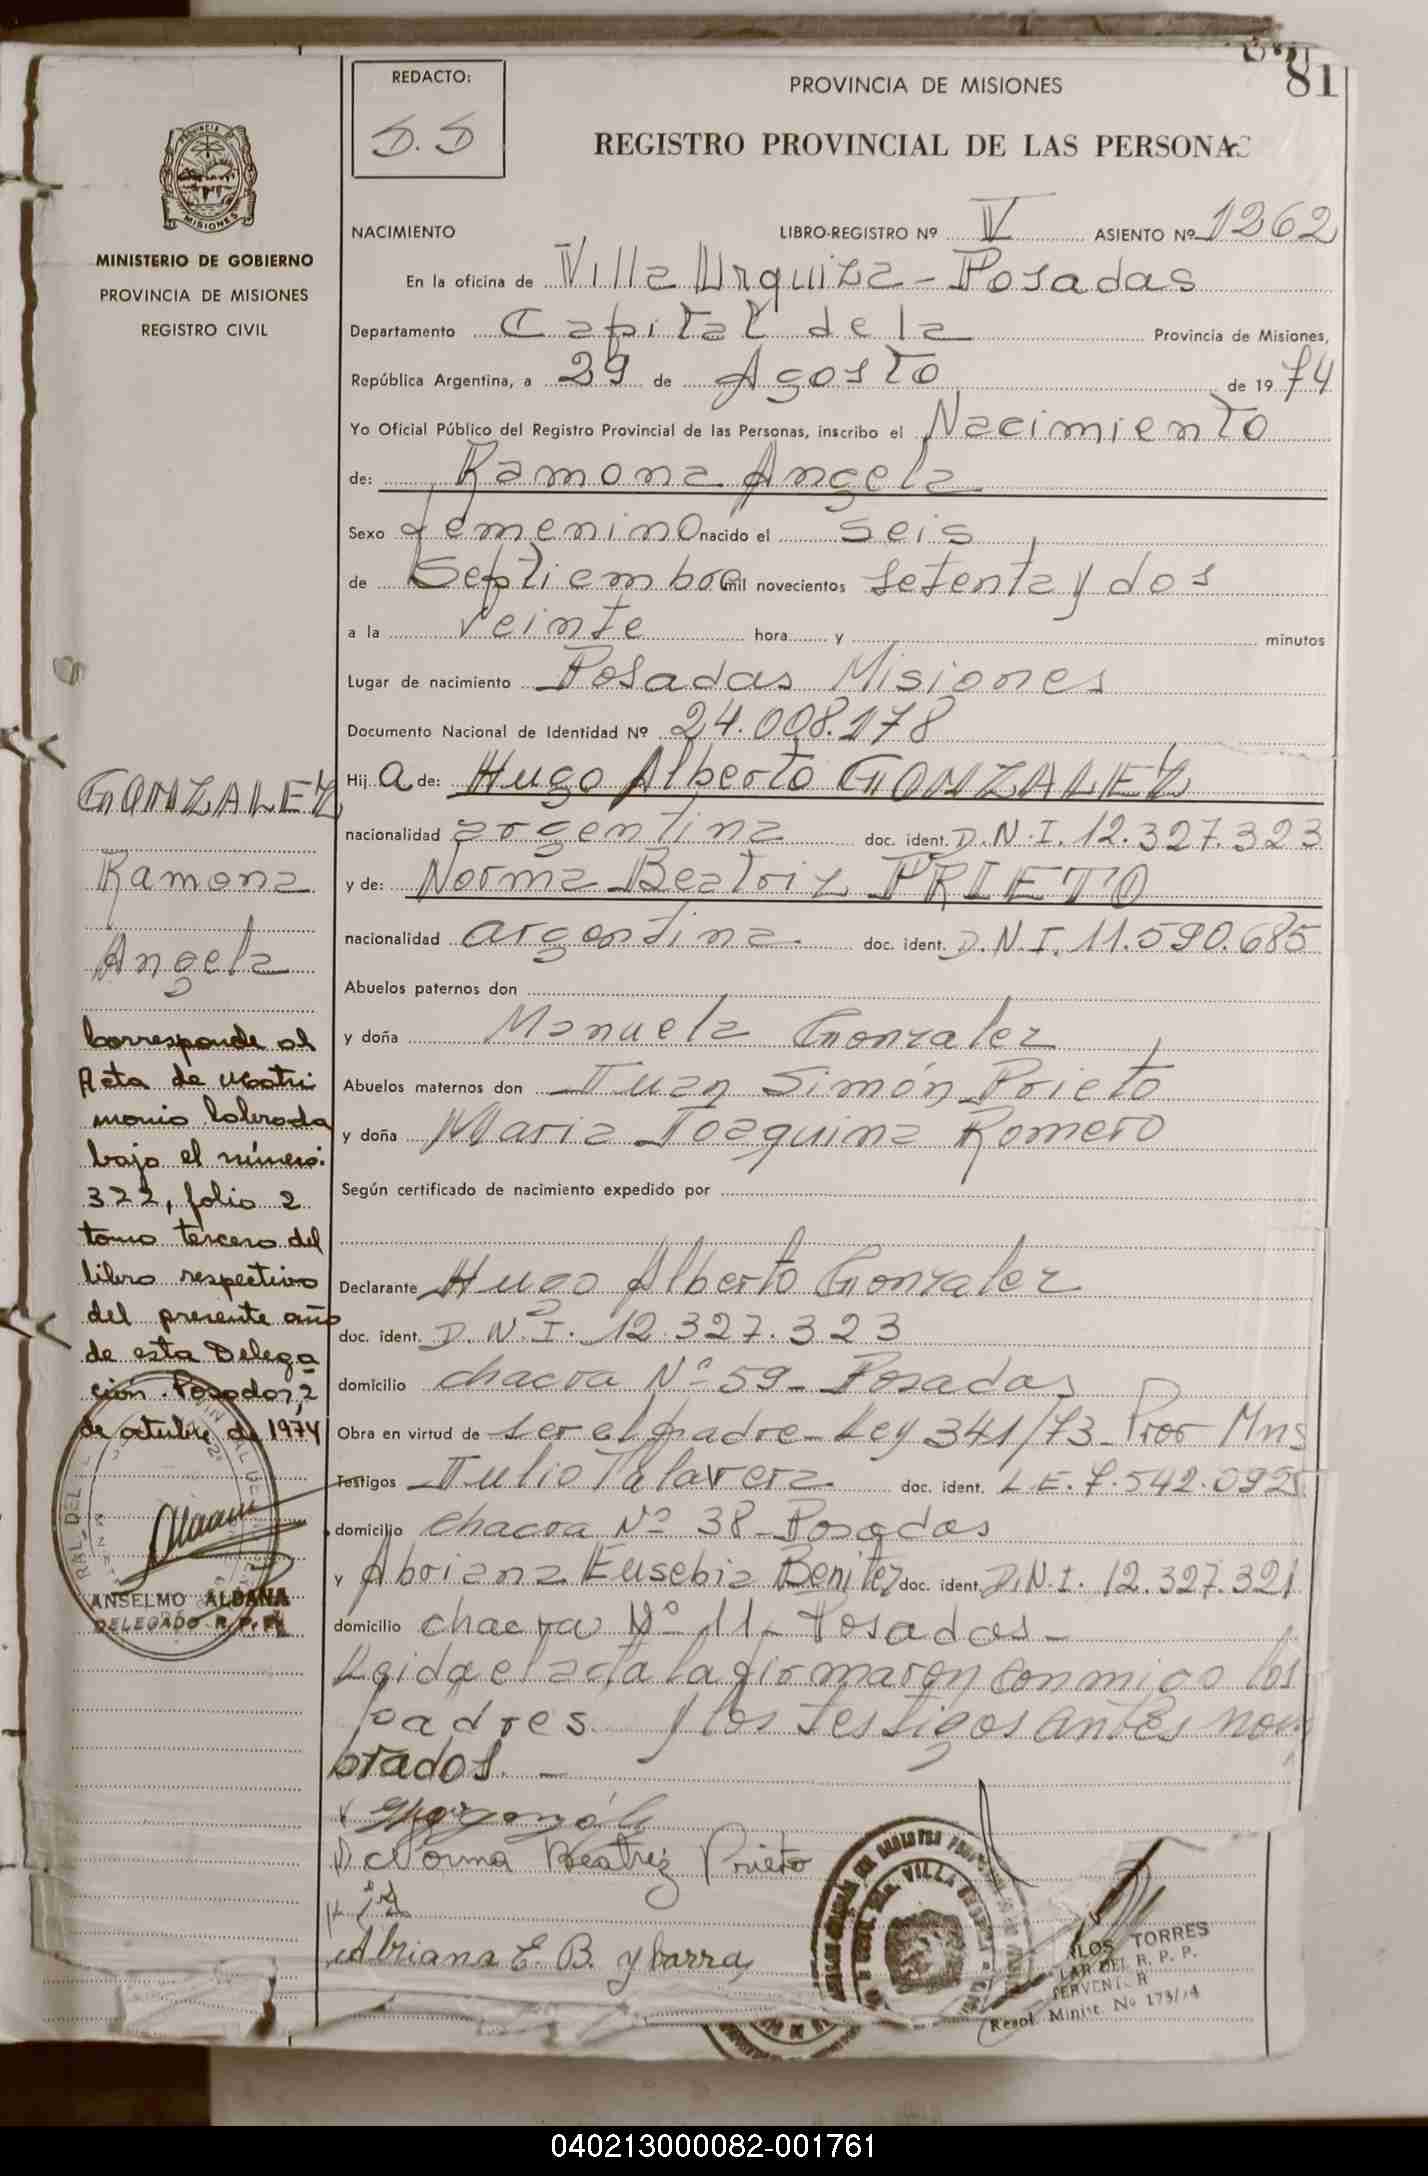 81
REDACTO:
D. D
PROVINCIA DE MISIONES
REGISTRO PROVINCIAL DE LAS PERSONAS
PROVINCIA DE
MISIONES
MINISTERIO DE GOBIERNO
PROVINCIA DE MISIONES
REGISTRO CIVIL
NACIMIENTO LIBRO-REGISTRO Nº V ASIENTO Nº 1262
En la oficina de Villa Urquiza - Posadas
Departamento Capital de la Provincia de Misiones,
República Argentina, a 29 de Agosto de 1974
Yo Oficial Público del Registro Provincial de las Personas, inscribo el Nacimiento
de: Ramona Angela
Sexo femenino nacido el seis
de Septiembre mil novecientos setenta y dos
a la veinte hora y minutos
Lugar de nacimiento Posadas Misiones
Documento Nacional de Identidad Nº 24.008.178
Hij a de: Hugo Alberto GONZALEZ
nacionalidad argentina doc. ident. D.N.I. 12.327.323
y de: Norma Beatriz PRIETO
nacionalidad argentina doc. ident. D.N.I. 11.590.685
Abuelos paternos don
y doña Manuela Gonzalez
Abuelos maternos don Juan Simón Prieto
y doña Maria Joaquina Romero
Según certificado de nacimiento expedido por
Declarante Hugo Alberto Gonzalez
doc. ident. D.N.I. 12.327.323
domicilio chacra Nº 59 - Posadas
Obra en virtud de ser el padre - Ley 341/73 - Pror Mns
Testigos Julio Talavera doc. ident. L.E. 7.542.092
domicilio chacra Nº 38 - Posadas
y Abriana Eusebia Benitez doc. ident. D.N.I. 12.327.321
domicilio chacra Nº 11 - Posadas -
Leida el acta la firmaron conmigo los
padres y los testigos antes nom
brados. -
Norma Beatriz Prieto
Abriana E. B. ybarra
GONZALEZ
Ramona
Angela
Corresponde al
Acta de Matri
monio labrada
bajo el número
322, folio 2
tomo tercero del
libro respectivo
del presente año
de esta Delega
ción. Posadas, 2
de octubre de 1974
ANSELMO ALDANA
DELEGADO R. P. P.
VILLA
TORRES
R. P. P.
Resol. Minist. Nº 173/74
040213000082-001761